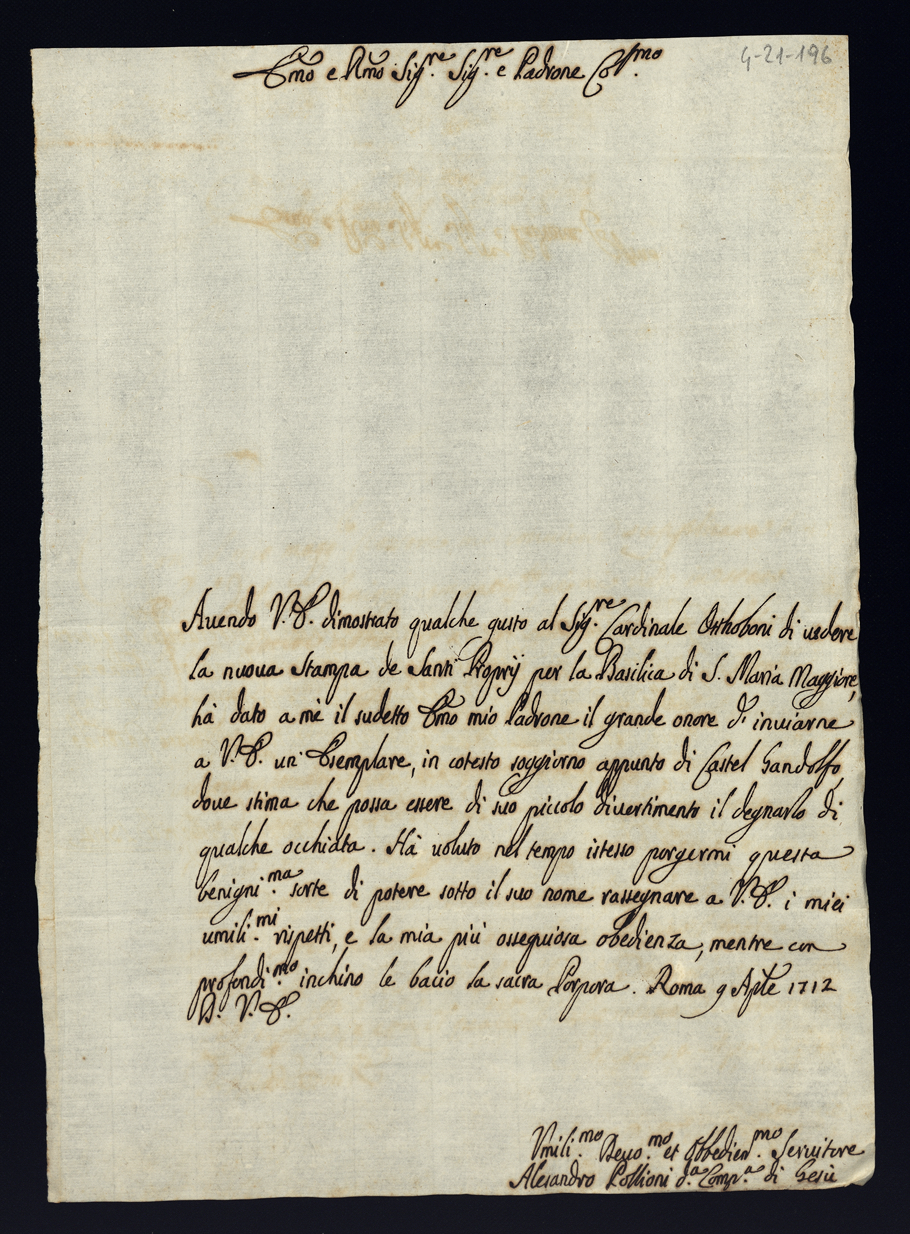 4-21-196
Emo e Rmo Sig.re Sig.re e Padrone Col.mo
Auendo V.E. dimostrato qualche gusto al Sig.re Cardinale Otthoboni di uedere
la nuoua stampa de Santi Proprÿ per la Basilica di S. Maria Maggiore,
hà dato a mè il sudetto Emo mio Padrone il grande onore d'inuiarne
a V.E. un' Esemplare, in cotesto soggiorno appunto di Castel Gandolfo,
doue stima che possa essere di suo piccolo diuertimento il degnarlo di
qualche occhiata. Hà uoluto nel tempo istesso porgermi questa
benigni.ma sorte di potere sotto il suo nome rassegnare a V.E. i miei
umili.mi rispetti, e la mia più ossequiosa obedienza, mentre con
profondi.mo inchino le bacio la sacra Porpora. Roma 9 Aple 1712
D. V.E.
Vmili.mo Deuo.mo et Obbedien.mo Seruitore
Alesandro Pollioni d.a Comp.a di Gesù